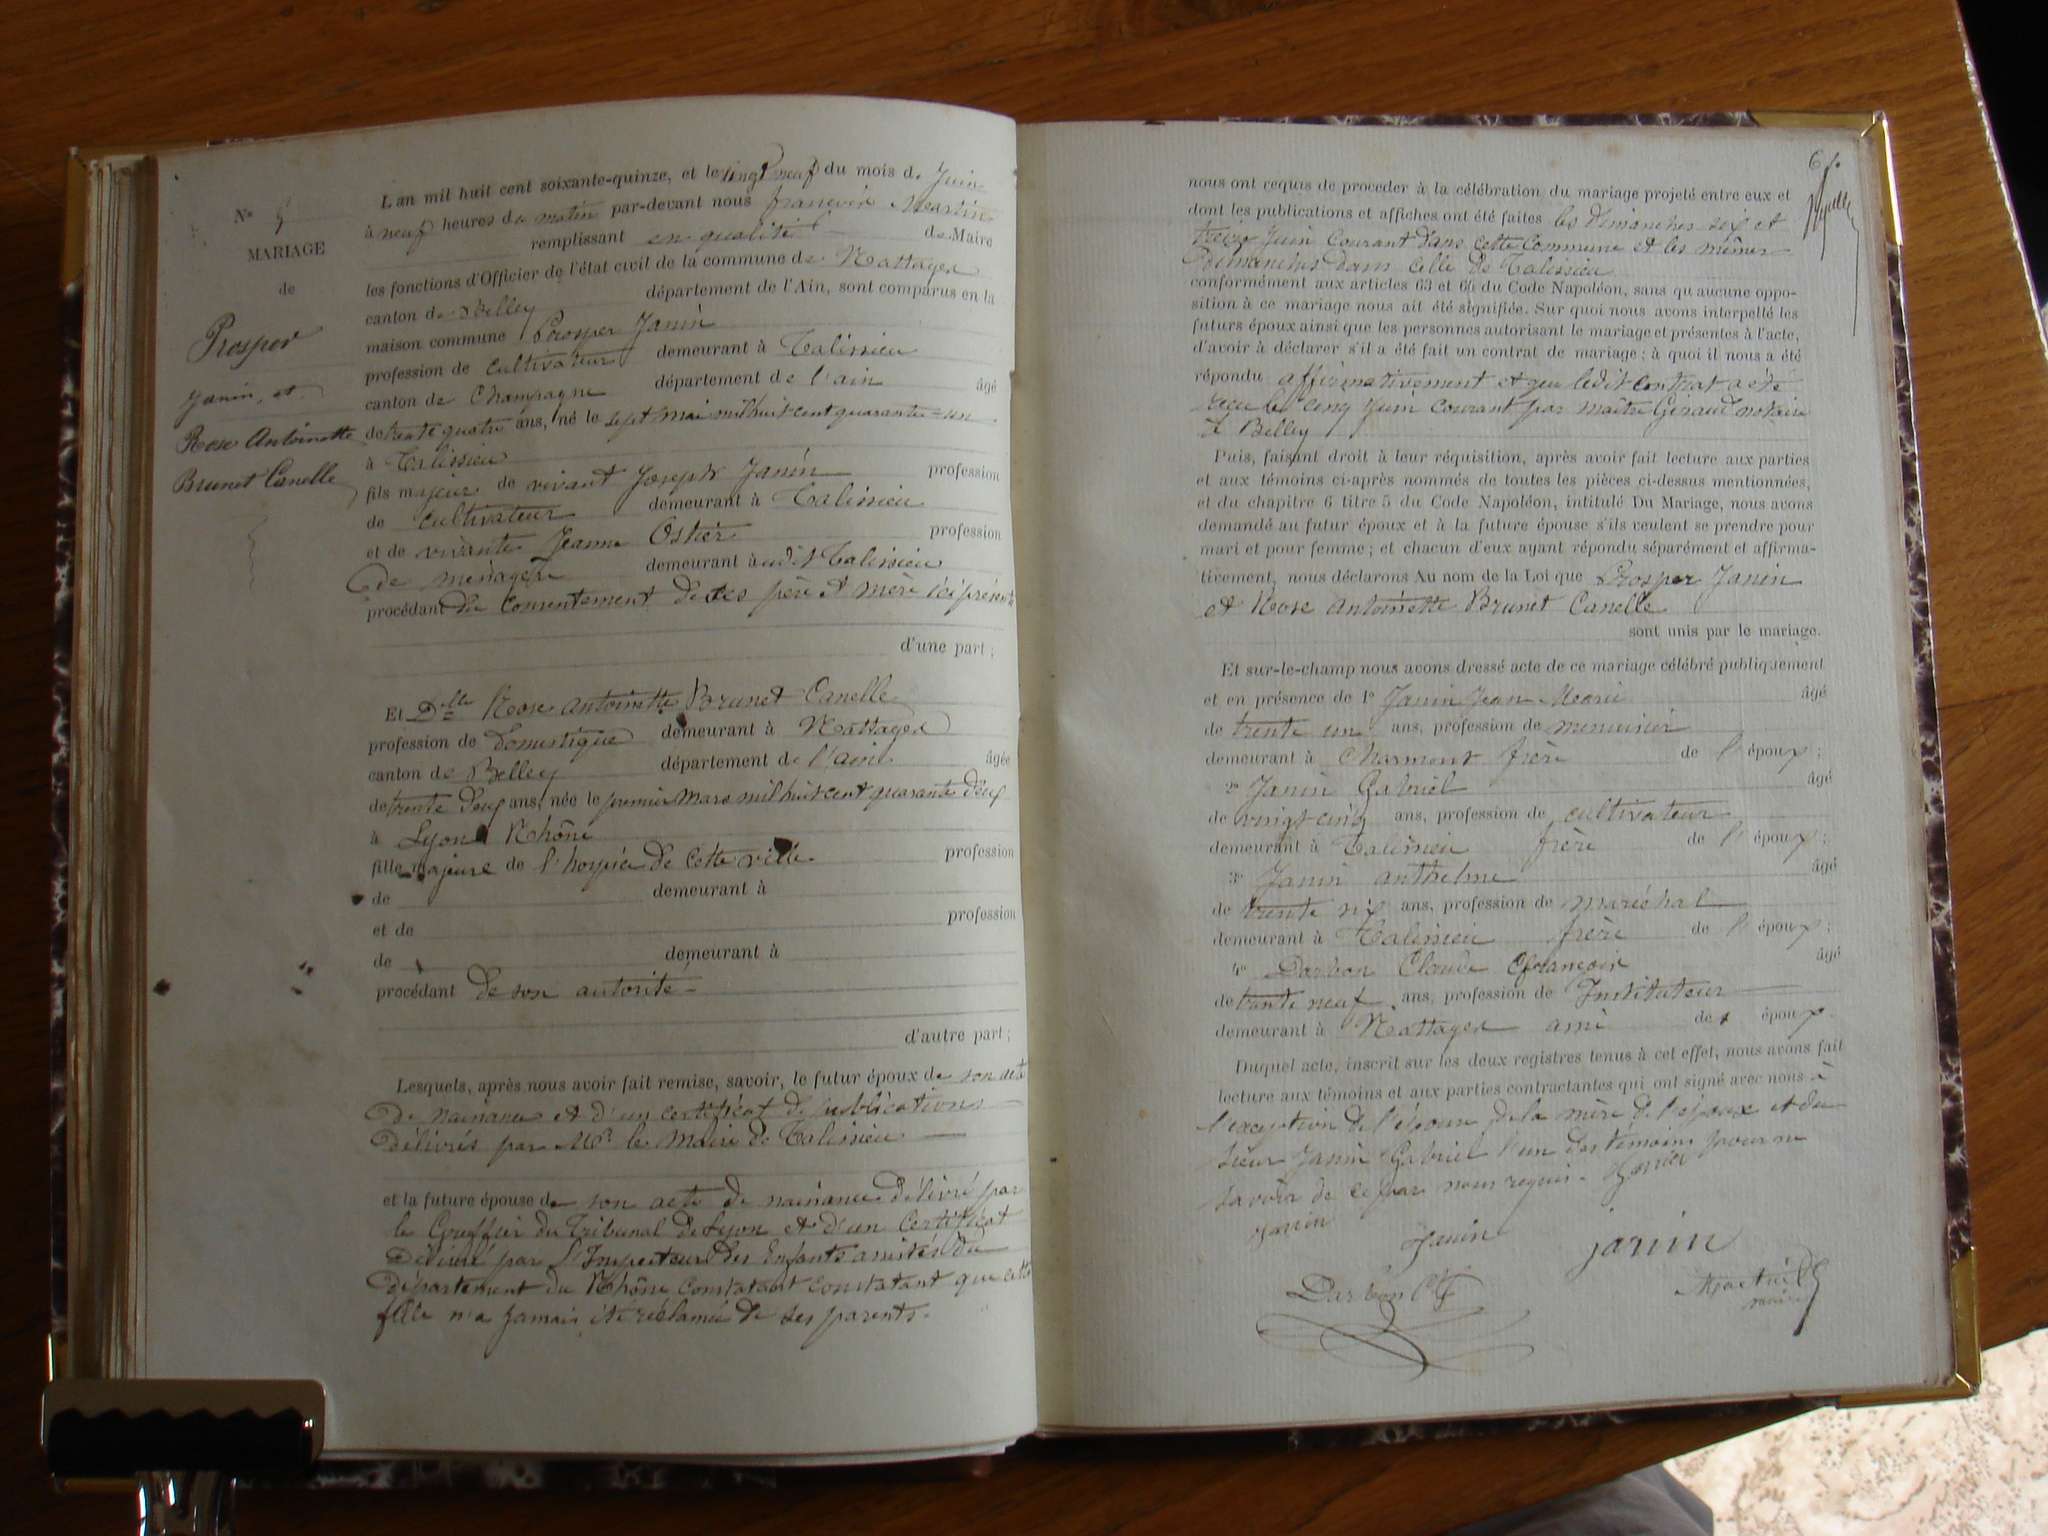 N° 5
MARIAGE
de
Prosper
Janin, et
Rose Antoinette
Brunet Canelle
L'an mil huit cent soixante-quinze, et le vingt neuf du mois de Juin
à neuf heures du matin par-devant nous Martin
remplissant en qualité de Maire
les fonctions d'Officier de l'état civil de la commune de Nattages
canton de Belley département de l'Ain, sont comparus en la
maison commune Prosper Janin
profession de cultivateur demeurant à Talissieu
canton de Champagne département de l'ain âgé
de trente quatre ans, né le sept mai mil huit cent quarante-un
à Talissieu
fils majeur de vivant Joseph Janin profession
de cultivateur demeurant à Talissieu
et de vivante Jeanne Ostier profession
de ménagère demeurant à udit Talissieu
procédant du consentement de ses père et mère ici présents
d'une part;
Et Dlle Rose Antoinette Brunet Canelle
profession de Domestique demeurant à Nattages
canton de Belley département de l'ain âgée
de trente deux ans, née le premier Mars mil huit cent quarante deux
à Lyon Rhône
fille majeure de l'hospice de cette ville. profession
de demeurant à
et de profession
de demeurant à
procédant de son autorité -
d'autre part;
Lesquels, après nous avoir fait remise, savoir, le futur époux de son acte
de naissance et d'un certificat de publications
délivrés par Mr le Maire de Talissieu
et la future épouse de son acte de naissance délivré par
le Greffier du Tribunal de Lyon et d'un certificat
délivré par l'Inspecteur des Enfants assistés du
département du Rhône constatant constatant que cette
fille n'a jamais été réclamée de ses parents.
61.
nous ont requis de procéder à la célébration du mariage projeté entre eux et
dont les publications et affiches ont été faites les dimanches six et
treize Juin courant dans cette commune et les mêmes
dimanches dans celle de Talissieu
conformément aux articles 63 et 65 du Code Napoléon, sans qu'aucune oppo-
sition à ce mariage nous ait été signifiée. Sur quoi nous avons interpellé les
futurs époux ainsi que les personnes autorisant le mariage et présentes à l'acte,
d'avoir à déclarer s'il a été fait un contrat de mariage; à quoi il nous a été
répondu affirmativement et que ledit contrat a été
reçu le cinq Juin courant par maître Giraud notaire
à Belley
Puis, faisant droit à leur réquisition, après avoir fait lecture aux parties
et aux témoins ci-après nommés de toutes les pièces ci-dessus mentionnées,
et du chapitre 6 titre 5 du Code Napoléon, intitulé Du Mariage, nous avons
demandé au futur époux et à la future épouse s'ils veulent se prendre pour
mari et pour femme; et chacun d'eux ayant répondu séparément et affirma-
tivement, nous déclarons Au nom de la Loi que Prosper Janin
et Rose Antoinette Brunet Canelle
sont unis par le mariage.
Et sur-le-champ nous avons dressé acte de ce mariage célébré publiquement
et en présence de 1° Janin Jean Marie âgé
de trente un ans, profession de menuisier
demeurant à Charmont frère de l'époux;
2° Janin Gabriel âgé
de vingt cinq ans, profession de cultivateur
demeurant à Talissieu frère de l'époux;
3° Janin anthelme âgé
de trente six ans, profession de maréchal
demeurant à Talissieu frère de l'époux;
4° Darbon Claude François âgé
de trente neuf ans, profession de Instituteur
demeurant à Nattages ami des époux.
Duquel acte, inscrit sur les deux registres tenus à cet effet, nous avons fait
lecture aux témoins et aux parties contractantes qui ont signé avec nous à
l'exception de l'épouse de la mère de l'époux et du
sieur Janin Gabriel l'un des témoins pour ne
savoir de ce par nous requis. Janin
Janin Janin janin
Darbon C F